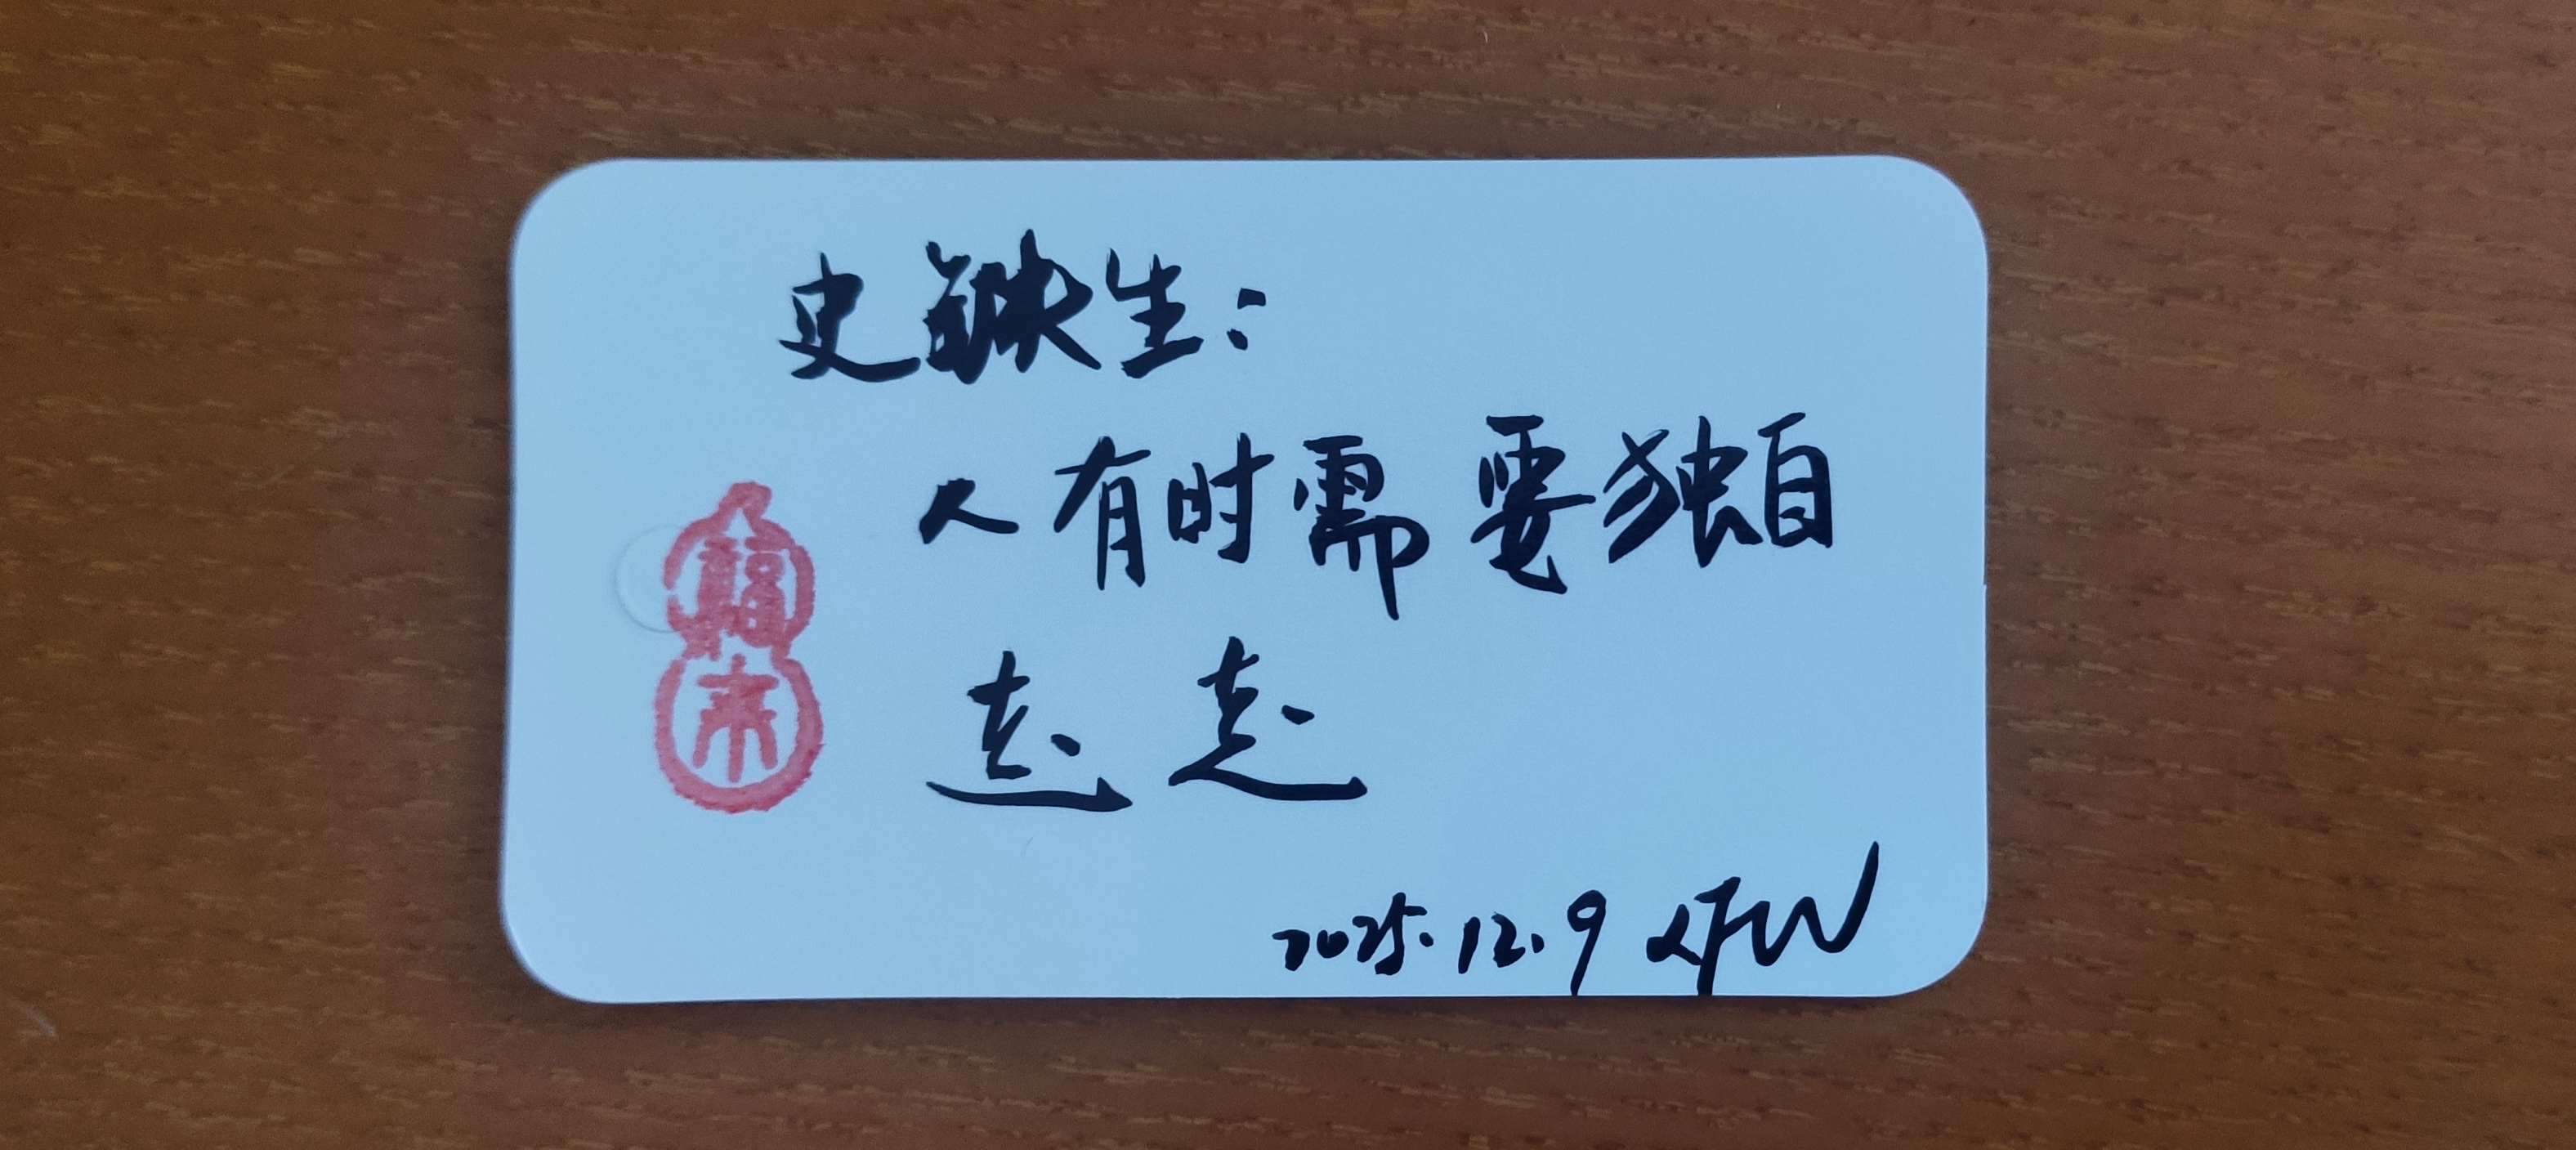 史铁生：
人有时需要独自
走走
福来
2025.12.9